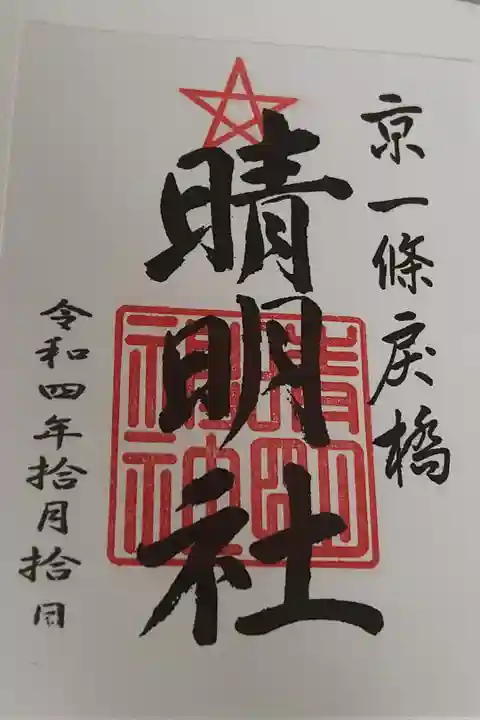 京一條戻橋
晴明社
晴明神社
令和四年拾月拾日